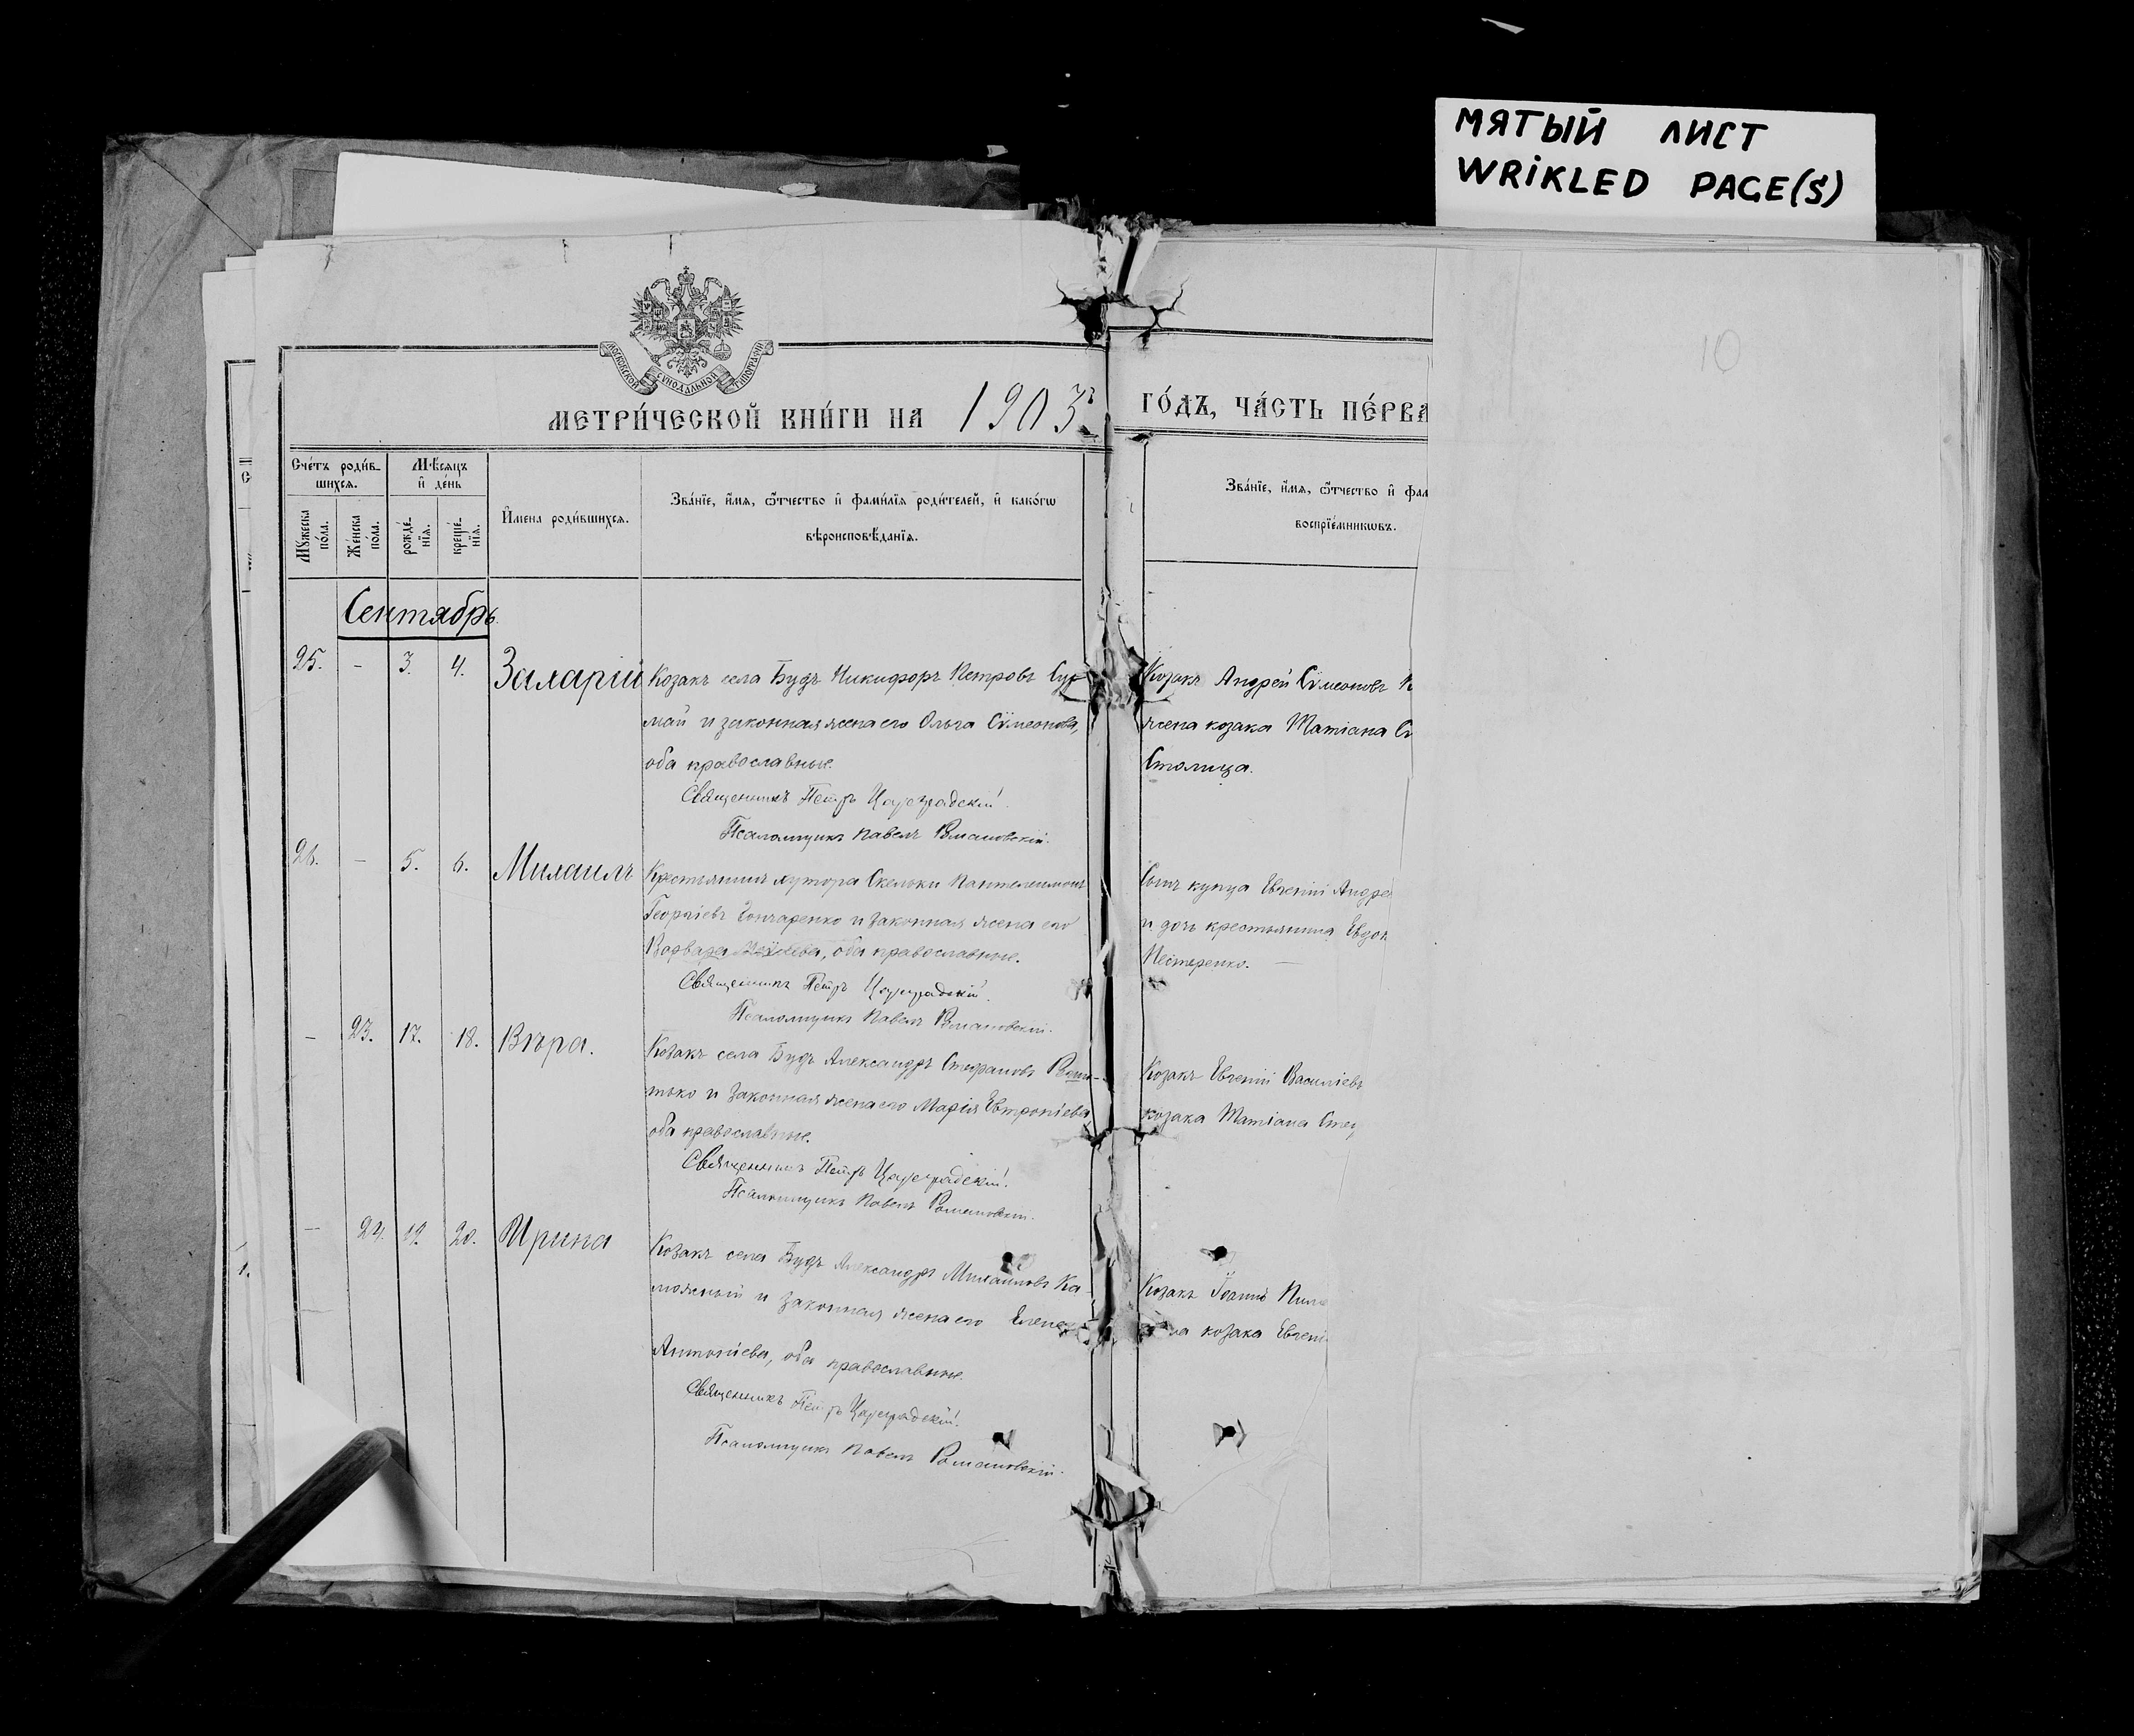 МЯТЫЙ ЛИСТ
WRIKLED PAGE(S)
10
МОСКОВСКОЙ СѴНОДАЛЬНОЙ ТИПОГРАФІИ
МЕТРИ́ЧЕСКОЙ КНИ́ГИ НА 1903 ГО́ДЪ, ЧА́СТЬ ПЕ́РВА
Сче́тъ роди́в-
шихсѧ.
Мѣ́сѧцъ
и҆ де́нь
Мꙋ́жеска по́ла.
Же́нска по́ла.
рожде́-нїѧ.
креще́-нїѧ.
И҆мена̀ роди́вшихсѧ.
Зва́нїе, и҆́мѧ, ѻ҆́тчество и҆ фами́лїѧ роди́телей, и҆ како́гѡ
вѣроисповѣ́данїѧ.
Зва́нїе, и҆́мѧ, ѻ҆́тчество и҆ фам
воспрїе́мникѡвъ.
Сентябрь
25. - 3. 4. Захарій Козакъ села Будъ Никифоръ Петровъ Сур
май и законная жена его Ольга Сѵмеонова,
оба православные.
Священникъ Петръ Цареградскій.
Псаломщикъ Павелъ Романовскій.
Козакъ Андрей Сѵмеоновъ
жена козака Татіана
Столица.
26. - 5. 6. Михаилъ Крестьянинъ хутора Скельки Пантелеимонъ
Георгіевъ Гончаренко и законная жена его
Варвара оба православные.
Священникъ Петръ Цареградскій.
Псаломщикъ Павелъ Романовскій.
Сынъ купца Евгеній Андре
и дочь крестьянина Евдок
Нестеренко. -
- 23. 17. 18. Вѣра. Козакъ села Будъ Александръ Стефановъ
и законная жена его Марія Евтропіева,
оба православные.
Священникъ Петръ Цареградскій.
Псаломщикъ Павелъ Романовскій.
Козакъ Евгеній Василіевъ
козака Татіана Стеф
- 24. 19. 20. Ирина Козакъ села Будъ Александръ Михаиловъ Ка-
и законная жена его Елена
Антоніева, оба православные.
Священникъ Петръ Цареградскій.
Псаломщикъ Павелъ Романовскій.
Козакъ Іоаннъ
козака Евгені
1.